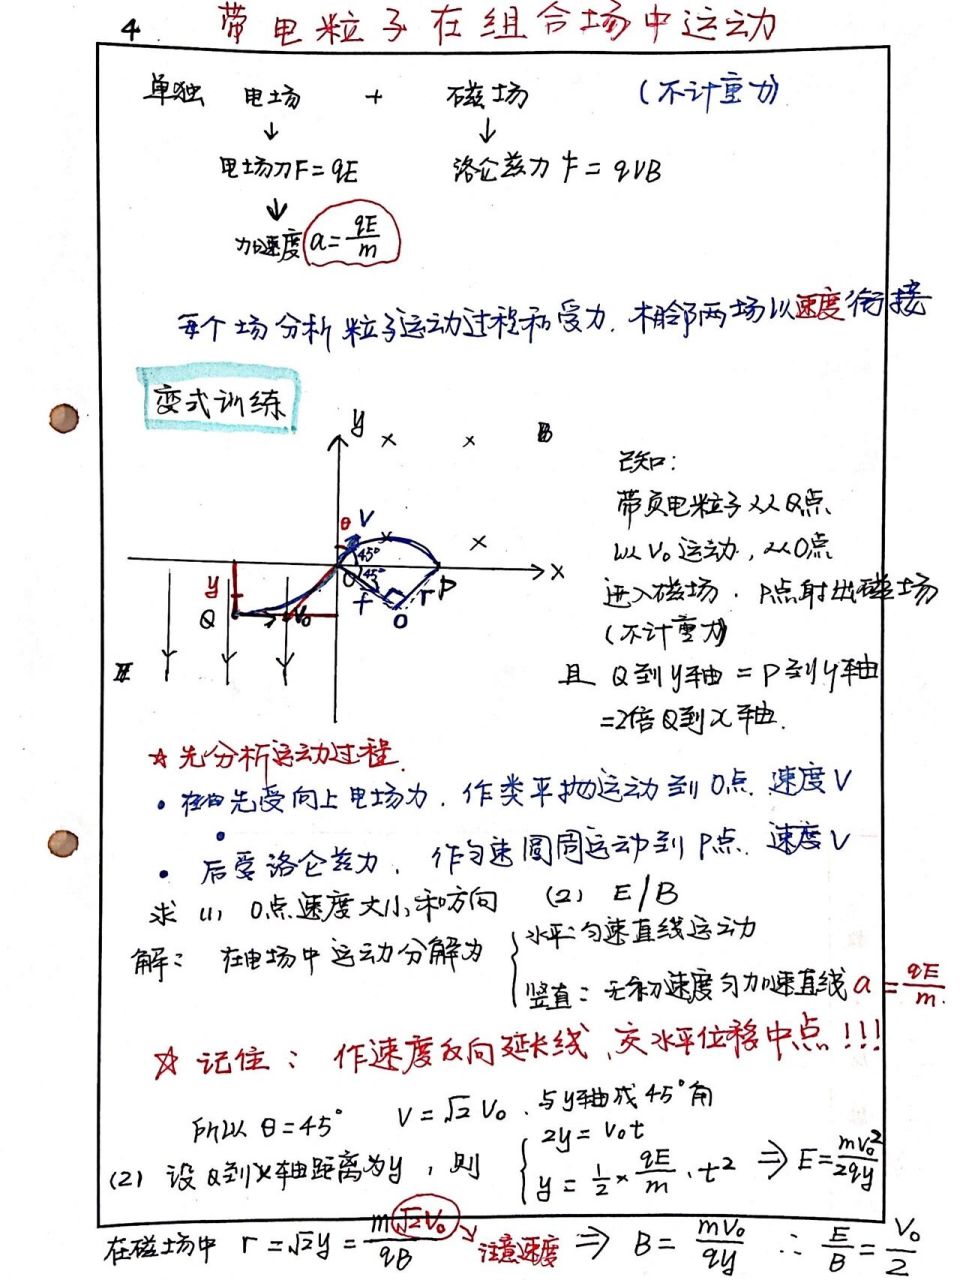 4 带电粒子在组合场中运动
单独 电场 + 磁场 (不计重力)
↓ ↓
电场力F=qE 洛仑兹力 f=qVB
↓
加速度 a=qE/m
每个场分析粒子运动过程和受力.相邻两场以速度衔接
变式训练
y × × B
已知:
带负电粒子从Q点
以V₀运动,从O点
进入磁场.P点射出磁场
(不计重力)
且 Q到y轴 = P到y轴
=2倍Q到x轴.
θ V × 45° ×
O 45° P X
y r r
Q V₀ O
E
☆先分析运动过程.
• 先受向上电场力.作类平抛运动到O点.速度V
• 后受洛仑兹力.作匀速圆周运动到P点.速度V
求 (1) O点速度大小和方向 (2) E/B
解: 在电场中运动分解为 { 水平:匀速直线运动
竖直:无初速度匀加速直线 a=qE/m.
☆ 记住: 作速度反向延长线、交水平位移中点!!!
所以 θ=45° V=√2 V₀.与y轴成45°角
(2) 设Q到x轴距离为y,则 { 2y=V₀t
y=1/2×qE/m·t² ⇒ E=mV₀²/2qy
在磁场中 r=√2y=m√2V₀/qB → 注意速度 ⇒ B=mV₀/qy ∴ E/B=V₀/2